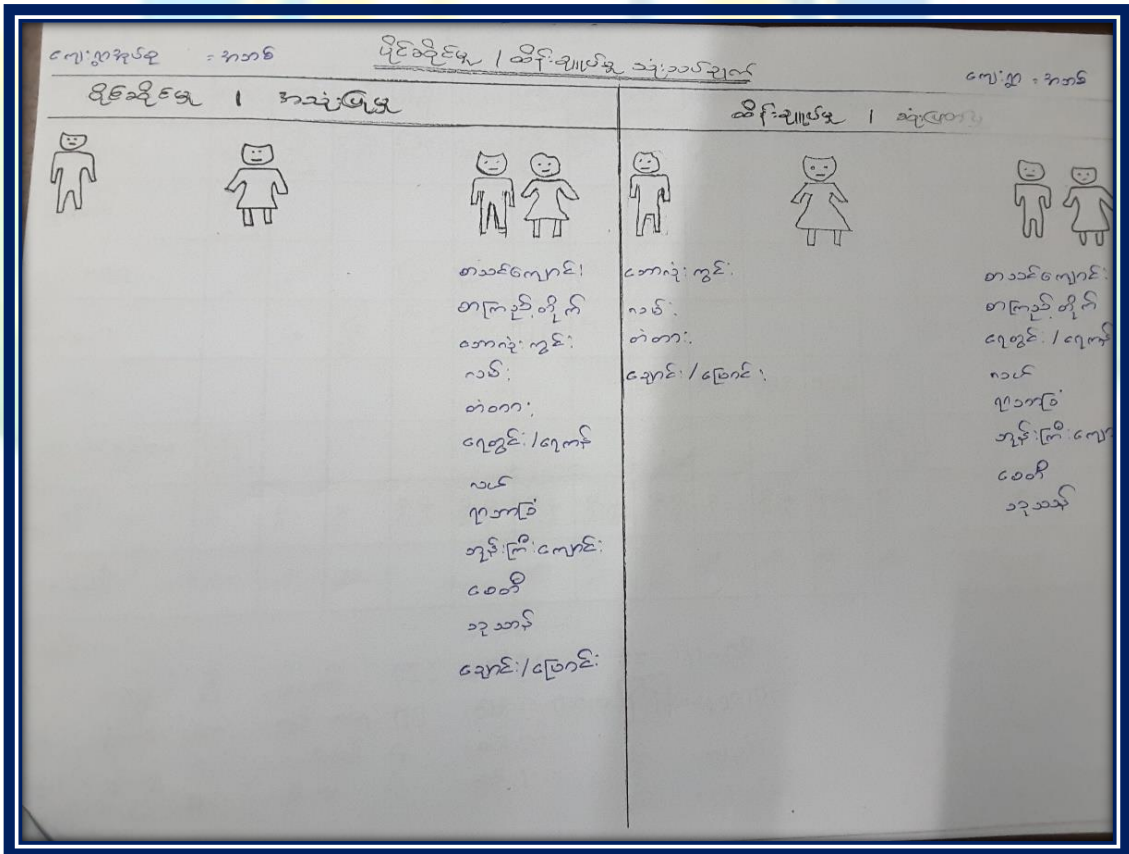 ကျေးရွာအုပ်စု = အဘစ်
ပိုင်ဆိုင်မှု / ထိန်းချုပ်မှု သုံးသပ်ချက်
ကျေးရွာ = အဘစ်
ပိုင်ဆိုင်မှု / အသုံးပြုမှု
ထိန်းချုပ်မှု /
စာသင်ကျောင်း
စာကြည့်တိုက်
ဘောလုံးကွင်း
လမ်း
တံတား
ရေတွင်း/ရေကန်
လယ်
ရာဘာခြံ
ဘုန်းကြီးကျောင်း
စေတီ
သုသာန်
ချောင်း/မြောင်း
ဘောလုံးကွင်း
လမ်း
တံတား
ချောင်း/မြောင်း
စာသင်ကျောင်း
စာကြည့်တိုက်
ရေတွင်း/ရေကန်
လယ်
ရာဘာခြံ
ဘုန်းကြီးကျော
စေတီ
သုသာန်